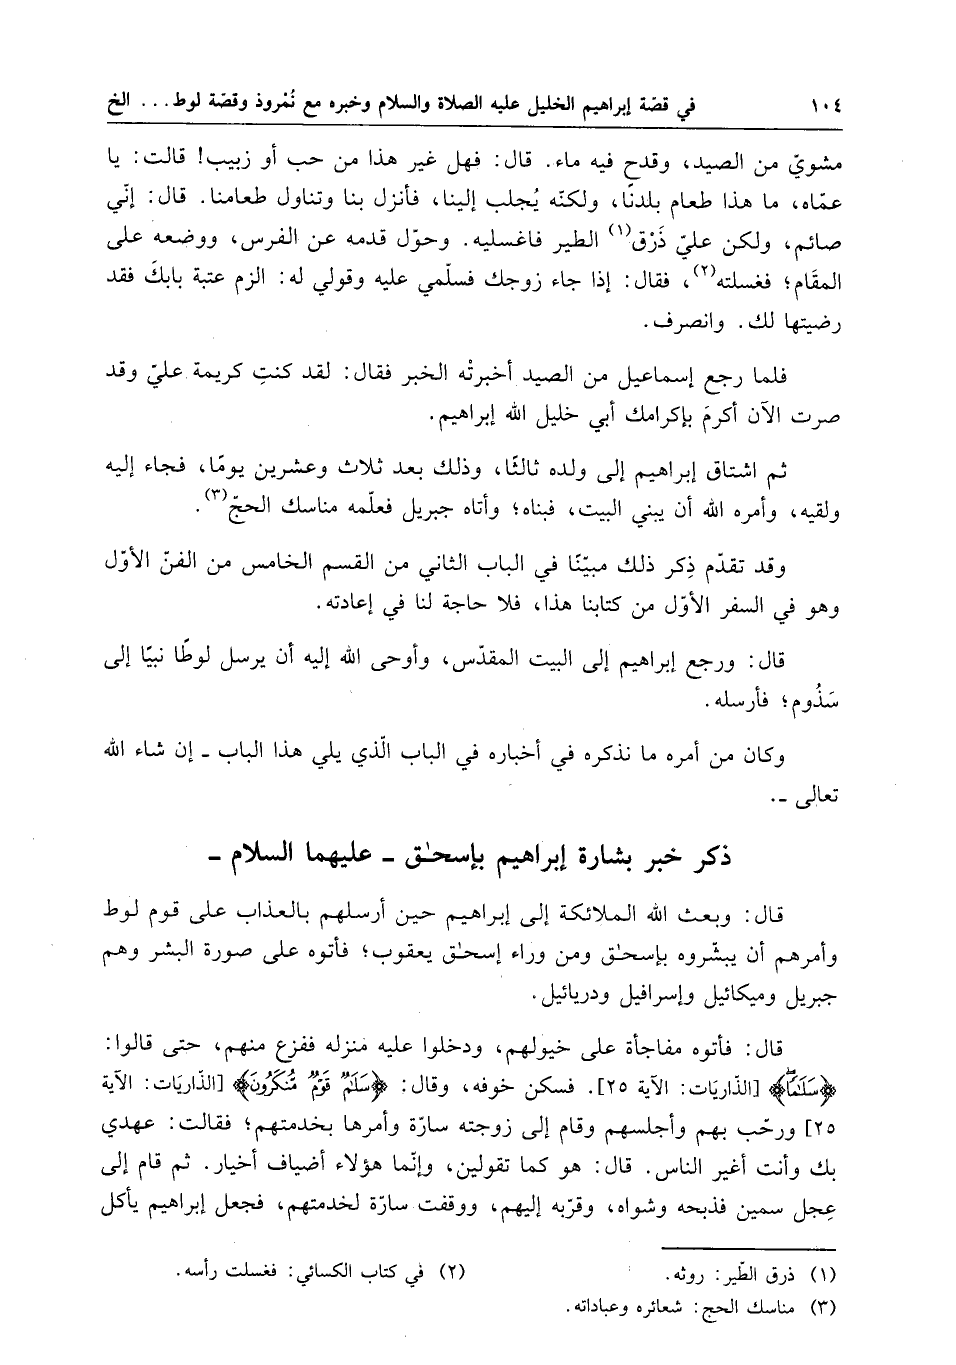 ١٠٤ في قصّة إبراهيم الخليل عليه الصلاة والسلام وخبره مع نُمْروذ وقصّة لوط... الخ
مشويّ من الصيد، وقدح فيه ماء. قال: فهل غير هذا من حب أو زبيب! قالت: يا
عمّاه، ما هذا طعام بلدنًا، ولكنّه يُجلب إلينا، فأنزل بنا وتناول طعامنا. قال: إنّي
صائم، ولكن عليّ ذَرْق(١) الطير فاغسليه. وحوّل قدمه عن الفرس، ووضعه على
المقَام؛ فغسلته(٢)، فقال: إذا جاء زوجك فسلّمي عليه وقولي له: الزم عتبة بابكَ فقد
رضيتها لك. وانصرف.
فلما رجع إسماعيل من الصيد أخبرتْه الخبر فقال: لقد كنتِ كريمة عليّ وقد
صرت الآن أكرمَ بإكرامك أبي خليل الله إبراهيم.
ثم اشتاق إبراهيم إلى ولده ثالثًا، وذلك بعد ثلاث وعشرين يومًا، فجاء إليه
ولقيه، وأمره الله أن يبني البيت، فبناه؛ وأتاه جبريل فعلّمه مناسك الحجّ(٣).
وقد تقدّم ذِكر ذلك مبيّنًا في الباب الثاني من القسم الخامس من الفنّ الأوّل
وهو في السفر الأوّل من كتابنا هذا، فلا حاجة لنا في إعادته.
قال: ورجع إبراهيم إلى البيت المقدّس، وأوحى الله إليه أن يرسل لوطًا نبيًا إلى
سَذُوم؛ فأرسله.
وكان من أمره ما نذكره في أخباره في الباب الّذي يلي هذا الباب ـ إن شاء الله
تعالى ـ.
ذكر خبر بشارة إبراهيم بإسحٰق ـ عليهما السلام ـ
قال: وبعث الله الملائكة إلى إبراهيم حين أرسلهم بالعذاب على قوم لوط
وأمرهم أن يبشّروه بإسحٰق ومن وراء إسحٰق يعقوب؛ فأتوه على صورة البشر وهم
جبريل وميكائيل وإسرافيل ودريائيل.
قال: فأتوه مفاجأة على خيولهم، ودخلوا عليه منزله ففزع منهم، حتى قالوا:
﴿سَلَٰمًا﴾ [الذّاريَات: الآية ٢٥]. فسكن خوفه، وقال: ﴿سَلَٰمٌ قَوْمٌ مُّنكَرُونَ﴾ [الذّاريَات: الآية
٢٥] ورحّب بهم وأجلسهم وقام إلى زوجته سارّة وأمرها بخدمتهم؛ فقالت: عهدي
بك وأنت أغير الناس. قال: هو كما تقولين، وإنّما هؤلاء أضياف أخيار. ثم قام إلى
عِجل سمين فذبحه وشواه، وقرّبه إليهم، ووقفت سارّة لخدمتهم، فجعل إبراهيم يأكل
(١) ذرق الطّير: روثه.
(٢) في كتاب الكسائي: فغسلت رأسه.
(٣) مناسك الحج: شعائره وعباداته.